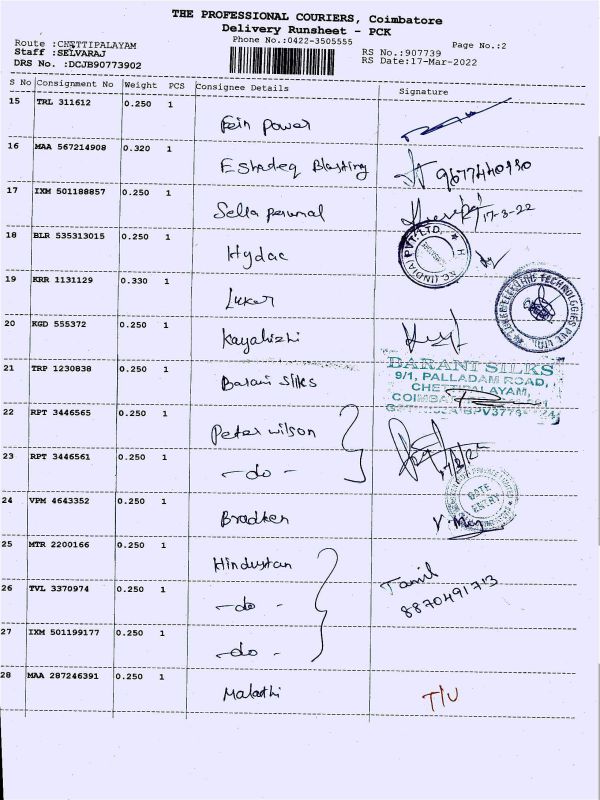 THE PROFESSIONAL COURIERS, Coimbatore
Delivery Runsheet - PCK
Phone No.:0422-3505555
Page No.:2
Route :CHETTIPALAYAM
Staff :SELVARAJ
RS No.:907739
DRS No. :DCJB90773902
RS Date:17-Mar-2022
S No Consignment No Weight PCS Consignee Details Signature
15 TRL 311612 0.250 1
Fein Power
16 MAA 567214908 0.320 1
Blasting
17 IXM 501188857 0.250 1
Sella Perumal 17-3-22
18 BLR 535313015 0.250 1
Hydac
(INDIA) PVT. LTD.
19 KRR 1131129 0.330 1
Luker
LUKER ELECTRIC TECHNOLOGIES PVT LTD
20 KGD 555372 0.250 1
Kayalvizhi
21 TRP 1230838 0.250 1
Barani Silks
BARANI SILKS
9/1, PALLADAM ROAD,
22 RPT 3446565 0.250 1
Peter wilson
23 RPT 3446561 0.250 1
- do -
24 VPM 4643352 0.250 1
Bradken
GATE
ENTRY
25 MTR 2200166 0.250 1
Hindustan
Tamil
8870491713
26 TVL 3370974 0.250 1
- do -
27 IXM 501199177 0.250 1
- do -
28 MAA 287246391 0.250 1
Malathi T/U